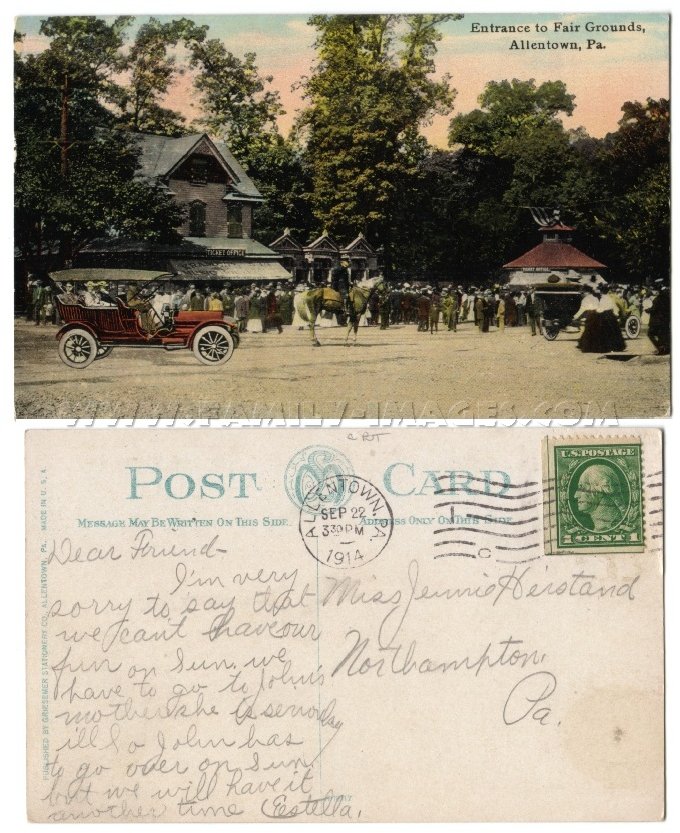 Entrance to Fair Grounds,
Allentown, Pa.
TICKET OFFICE
TICKET OFFICE
WWW.FAMILY-IMAGES.COM
POST CARD
MESSAGE MAY BE WRITTEN ON THIS SIDE.
ADDRESS ONLY ON THIS SIDE.
ALLENTOWN, PA
SEP 22
330 PM
1914
U.S. POSTAGE
1 CENT 1
PUBLISHED BY GRIESEMER STATIONERY CO., ALLENTOWN, PA. MADE IN U.S.A.
Dear Friend-
I'm very
sorry to say that
we cant have our
fun on Sun. we
have to go to John's
mother she is seriously
ill So John has
to go over on Sun.
but we will have it
another time Estella.
Miss Jennie Heistand
Northampton,
Pa.